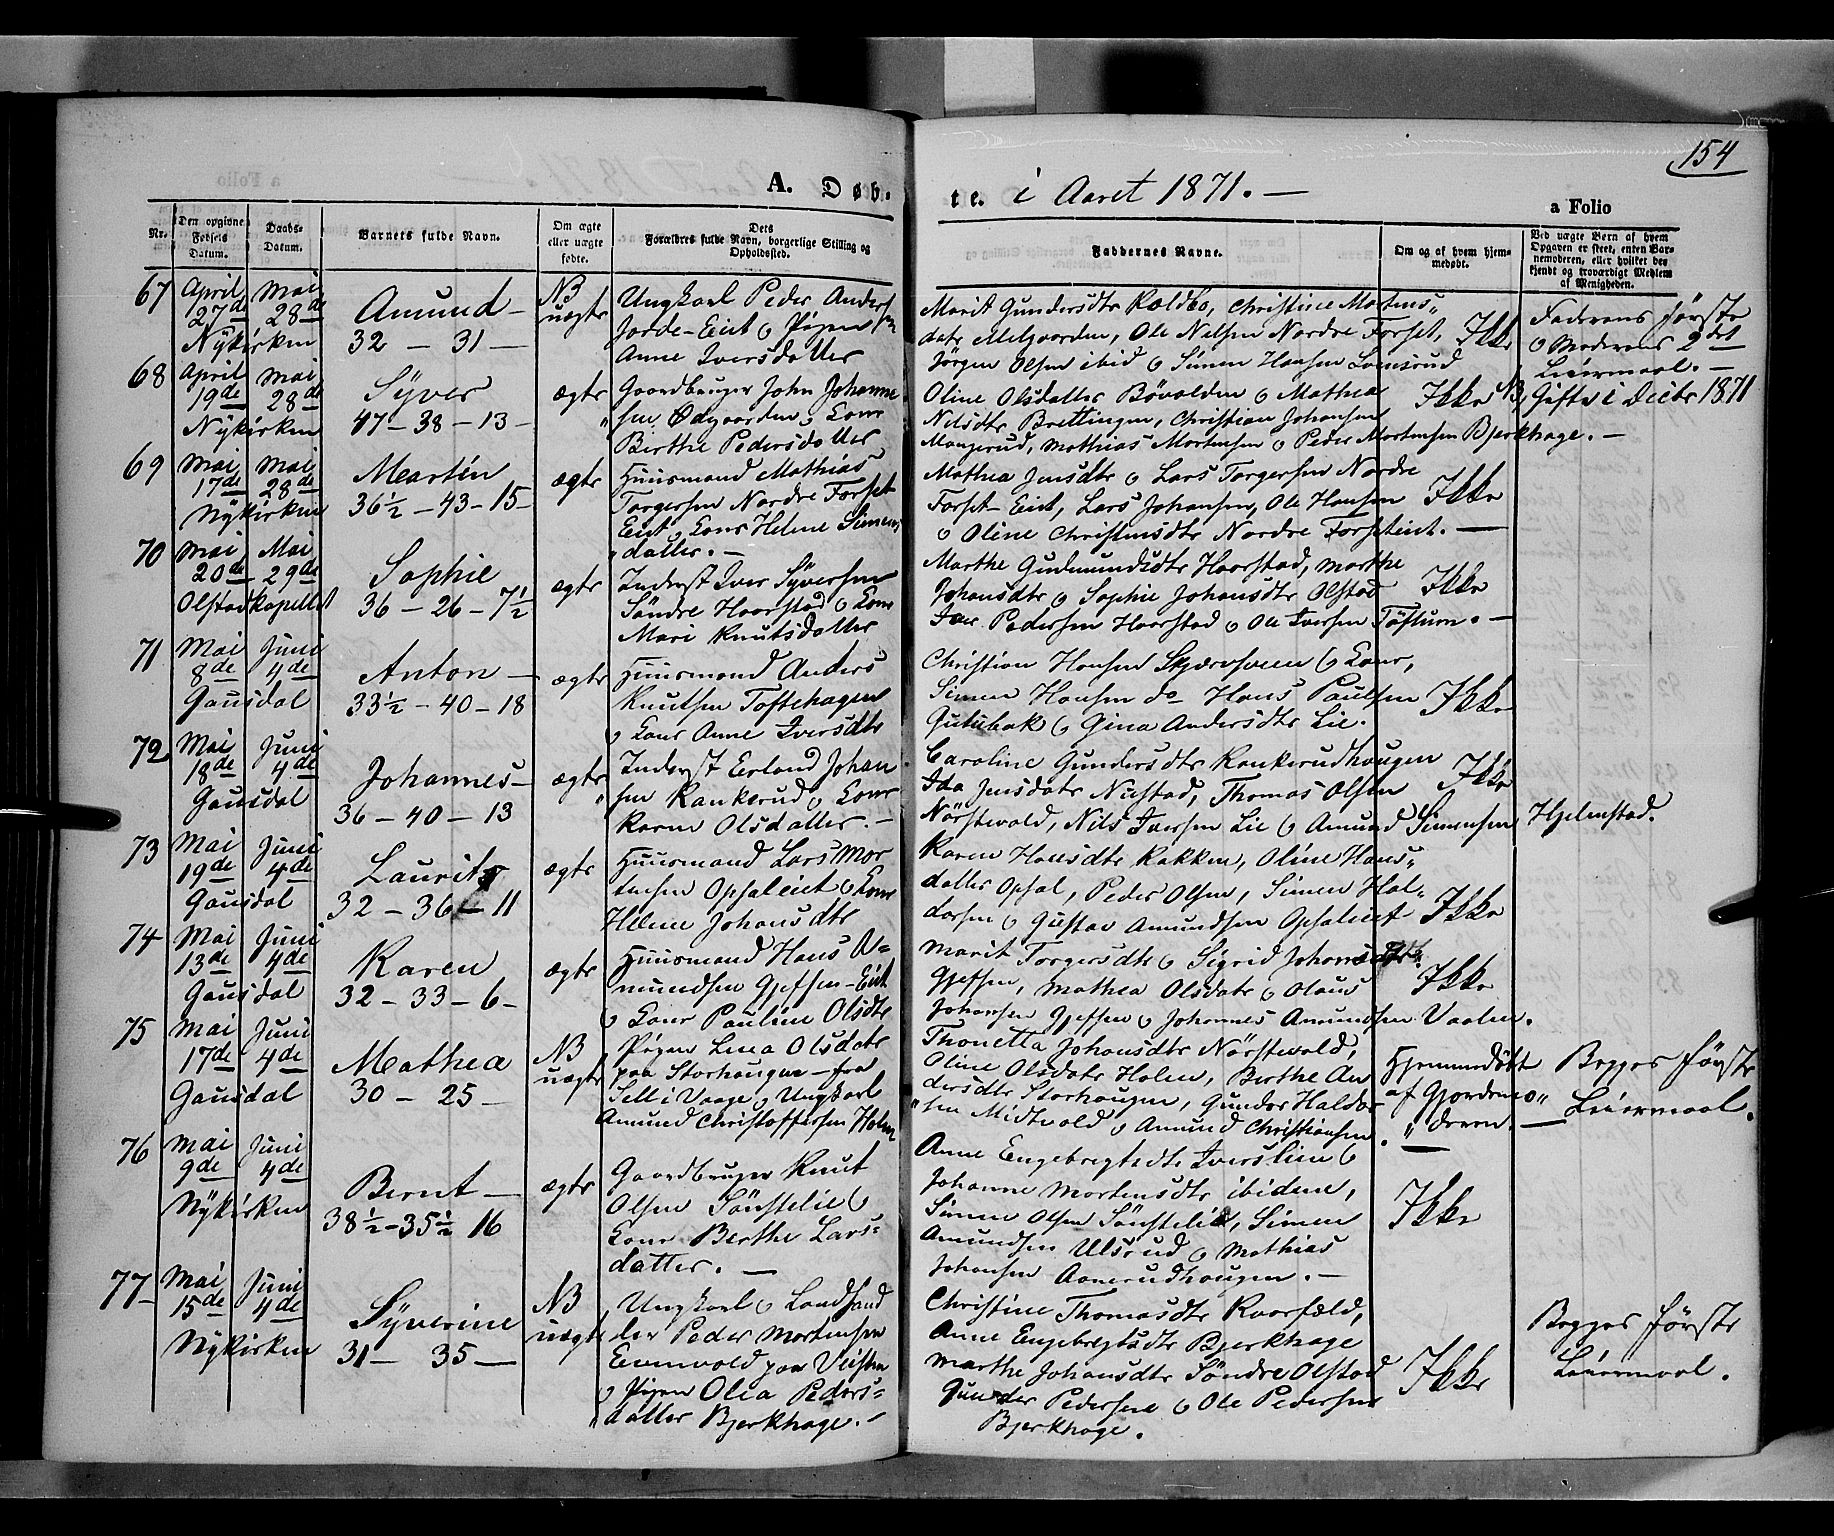 154
A. Døb-
te. i Aaret 1871. —
a Folio
Nr.
Den opgivne
Fødsels
Datum.
Daabs-
Datum.
Barnets fulde Navn.
Om ægte
eller uægte
fødte.
Dets
Forældres fulde Navn, borgerlige Stilling og
Opholdssted.
Faddernes Navne.
Om og af hvem hjem-
medøbt.
Ved uægte Børn af hvem
Opgaven er skeet, enten Bar-
nemoderen, eller hvilket be-
kjendt og troværdigt Medlem
af Menigheden.
67
April
27de
Mai
28de
Nykirken
Amund —
32 — 31 —
NB
uægte
Ungkarl Peder Anders
Jorde-Eiet o Pigen
Anne Iversdatter
Marit Gundersdtr Kældbo, Christine Mortens„
datr Melgaarden, Ole Nelsen Nordre Forset,
Jørgen Olsen ibid o Simen Hansen
Ikke
Faderens første
o Moderens 2det
Leiermaal. —
68
April
19de
Mai
28de
Nykirken
Syver
47 — 38 — 13 —
ægte
Gaardbruger John Johanne
„sen Ødegaarden o Kone
Birthe Pedersdatter
Oline Olsdatter Bövolden o Mathea
Nilsdtr Brettingen, Christian Johansen
Mangerud, Mathias Mortensen o Peder Mortensen Bjerkhage. —
Ikke
NB, Gifte i Decbr 1871
69
Mai
17de
Mai
28de
Nykirken
Martin
36½ — 43 — 15 —
ægte
Huusmand Mathias
Torgersen Nordre Forset
Eiet o Kone Helene Simens
„datter. —
Mathea Jensdtr o Lars Torgersen Nordre
Forset-Eiet, Lars Johansen, Ole Hansen
o Oline Christensdtr Nordre Forseteiet. —
Ikke
70
Mai
20de
Mai
29de
Olstadkapellet
Sophie
36 — 26 — 7½
ægte
Inderst Iver Syversen
Søndre Haarstad o Kone
Mari Knutsdatter
Marthe Gudmundsdtr Haarstad, Marthe
Johansdtr o Sophie Johansdtr Olstad
Iver Pedersen Haarstad o Ole Iversen Töftum. —
Ikke
71
Mai
8de
Juni
4de
Gausdal
Anton —
33½ — 40 — 18
ægte
Huusmand Anders
Knutsen Toftehagen
o Kone Anne Iversdtr
Christian Hansen Skjærvsveen o Kone,
Simen Hansen do Hans Paulsen
Gutubak o Gina Andersdtr Lie.
Ikke
72
Mai
18de
Juni
4de
Gausdal
Johannes —
36 — 40 — 13
ægte
Inderst Erland Johan
„sen Kankerud o Kone
Karen Olsdatter. —
Caroline Gundersdtr Kankerudhaugen
Ida Jensdatr Nustad, Thomas Olsen
Nörstevold, Nils Iversen Lie o Amund Simensen Hjelmstad.
Ikke
73
Mai
19de
Juni
4de
Gausdal
Lauritz
32 — 36 — 11
ægte
Huusmand Lars Mor
tensen Opsaleiet o Kone
Helene Johansdtr
Karen Hansdtr Kakken, Oline Hans„
datter Opsal, Peder Olsen, Simen Hal-
dorsen o Gustav Amundsen Opsaleiet
Ikke
74
Mai
13de
Juni
4de
Gausdal
Karen
32 — 33 — 6 —
ægte
Huusmand Hans A-
mundsen Gjefsen-Eiet
o Kone Pauline Olsdtr
Marit Torgersdtr o Sigrid Johansdtr
Gjefsen, Mathea Olsdatr o Olaus
Johansen Gjefsen o Johannes Amundsen Vaalen.
Ikke
75
Mai
17de
Juni
4de
Gausdal
Mathea
30 — 25 —
NB
uægte
Pigen Lena Olsdatr
paa Storhaugen — fra
Sell i Vaage o Ungkarl
Amund Christoffersen Holen
Thonetta Johansdtr Nörstevold,
Oline Olsdatr Holen, Berthe An
dersdtr Storhaugen, Gunder Haldor
„sen Midtvold o Amund Christiansen.
Hjemmedøbt
af Gjordemo„
„deren. —
Begges første
Leiermaal.
76
Mai
9de
Juni
4de
Nykirken
Bernt —
38½ — 35½ — 16
ægte
Gaardbruger Knut
Olsen Sönstelie o
Kone Berthe Lars-
datter. —
Anne Engebregtsdtr Iverslien o
Johanne Mortensdtr ibidem,
Simen Olsen Sönstelie, Simen
Amundsen Ulsrud o Mathias
Johansen Aanerudhaugen. —
Ikke
77
Mai
15de
Juni
4de
Nykirken
Syverine
31 — 35 —
NB
uægte
Ungkarl o Landhand
ler Peder Mortensen
Evenvold paa Veisten
o Pigen Olea Peders-
„datter Bjerkhage. —
Christine Thomasdtr Kvarfæld,
Anne Engebregtsdtr Bjerkhage
Marthe Johansdtr Söndre Olstad
Gunder Pedersen o Ole Pedersen
Bjerkhage.
Ikke
Begges første
Leiermaal.